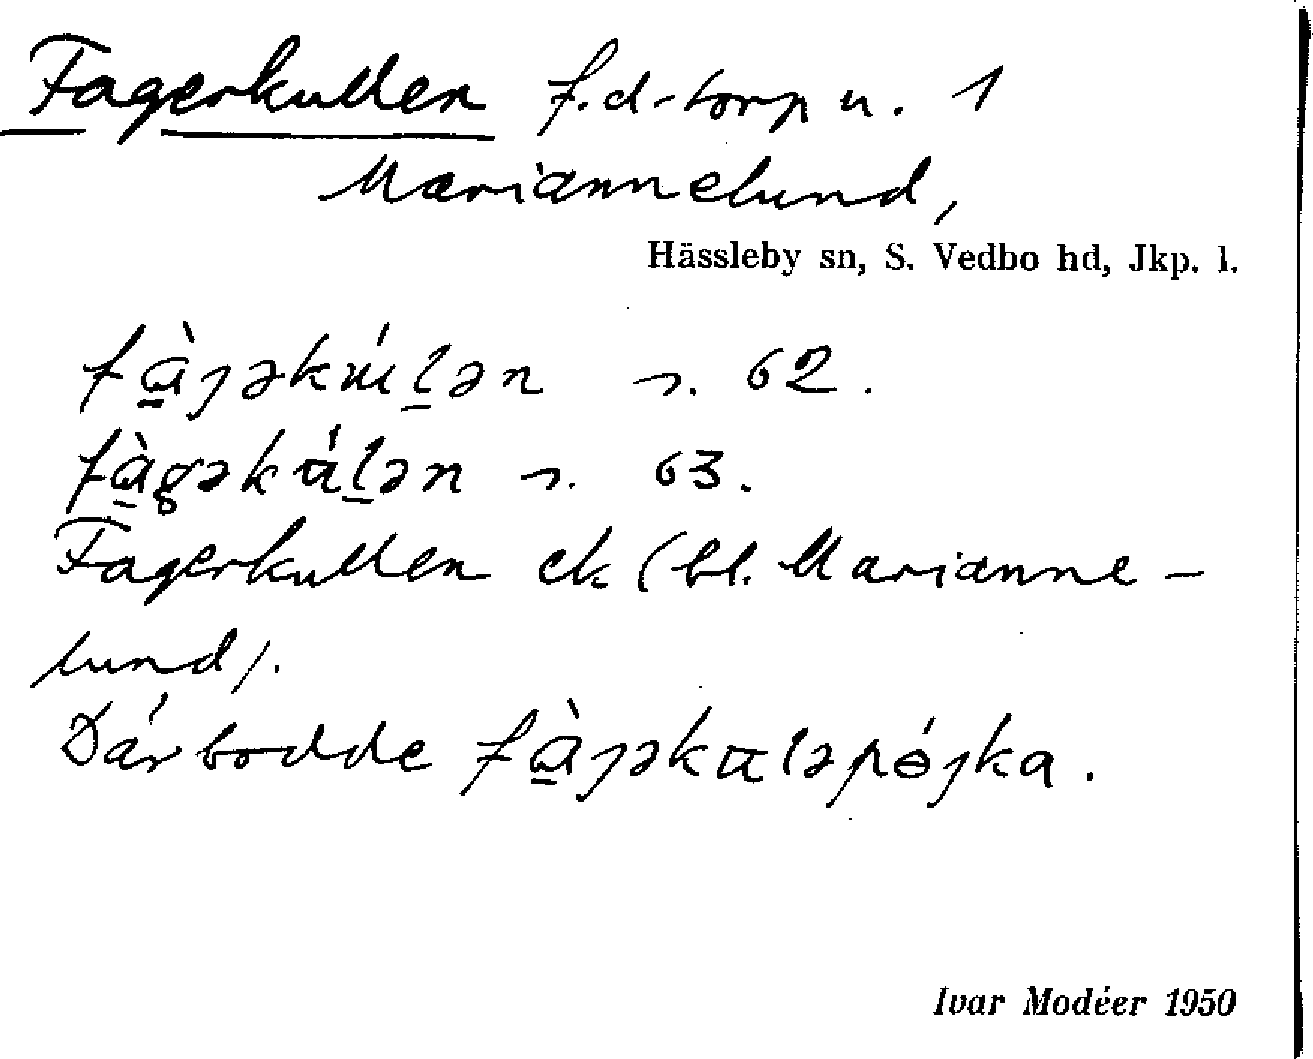 Fagerkullen f.d. torp u. 1
Mariannelund,
Hässleby sn, S. Vedbo hd, Jkp. l.
fɑ̀jəkúlən s. 62.
fɑ̀gəkúlən s. 63.
Fagerkullen ek (bl. Marianne-
lund).
Där bodde fɑ̀jəkuləpójka.
Ivar Modéer 1950